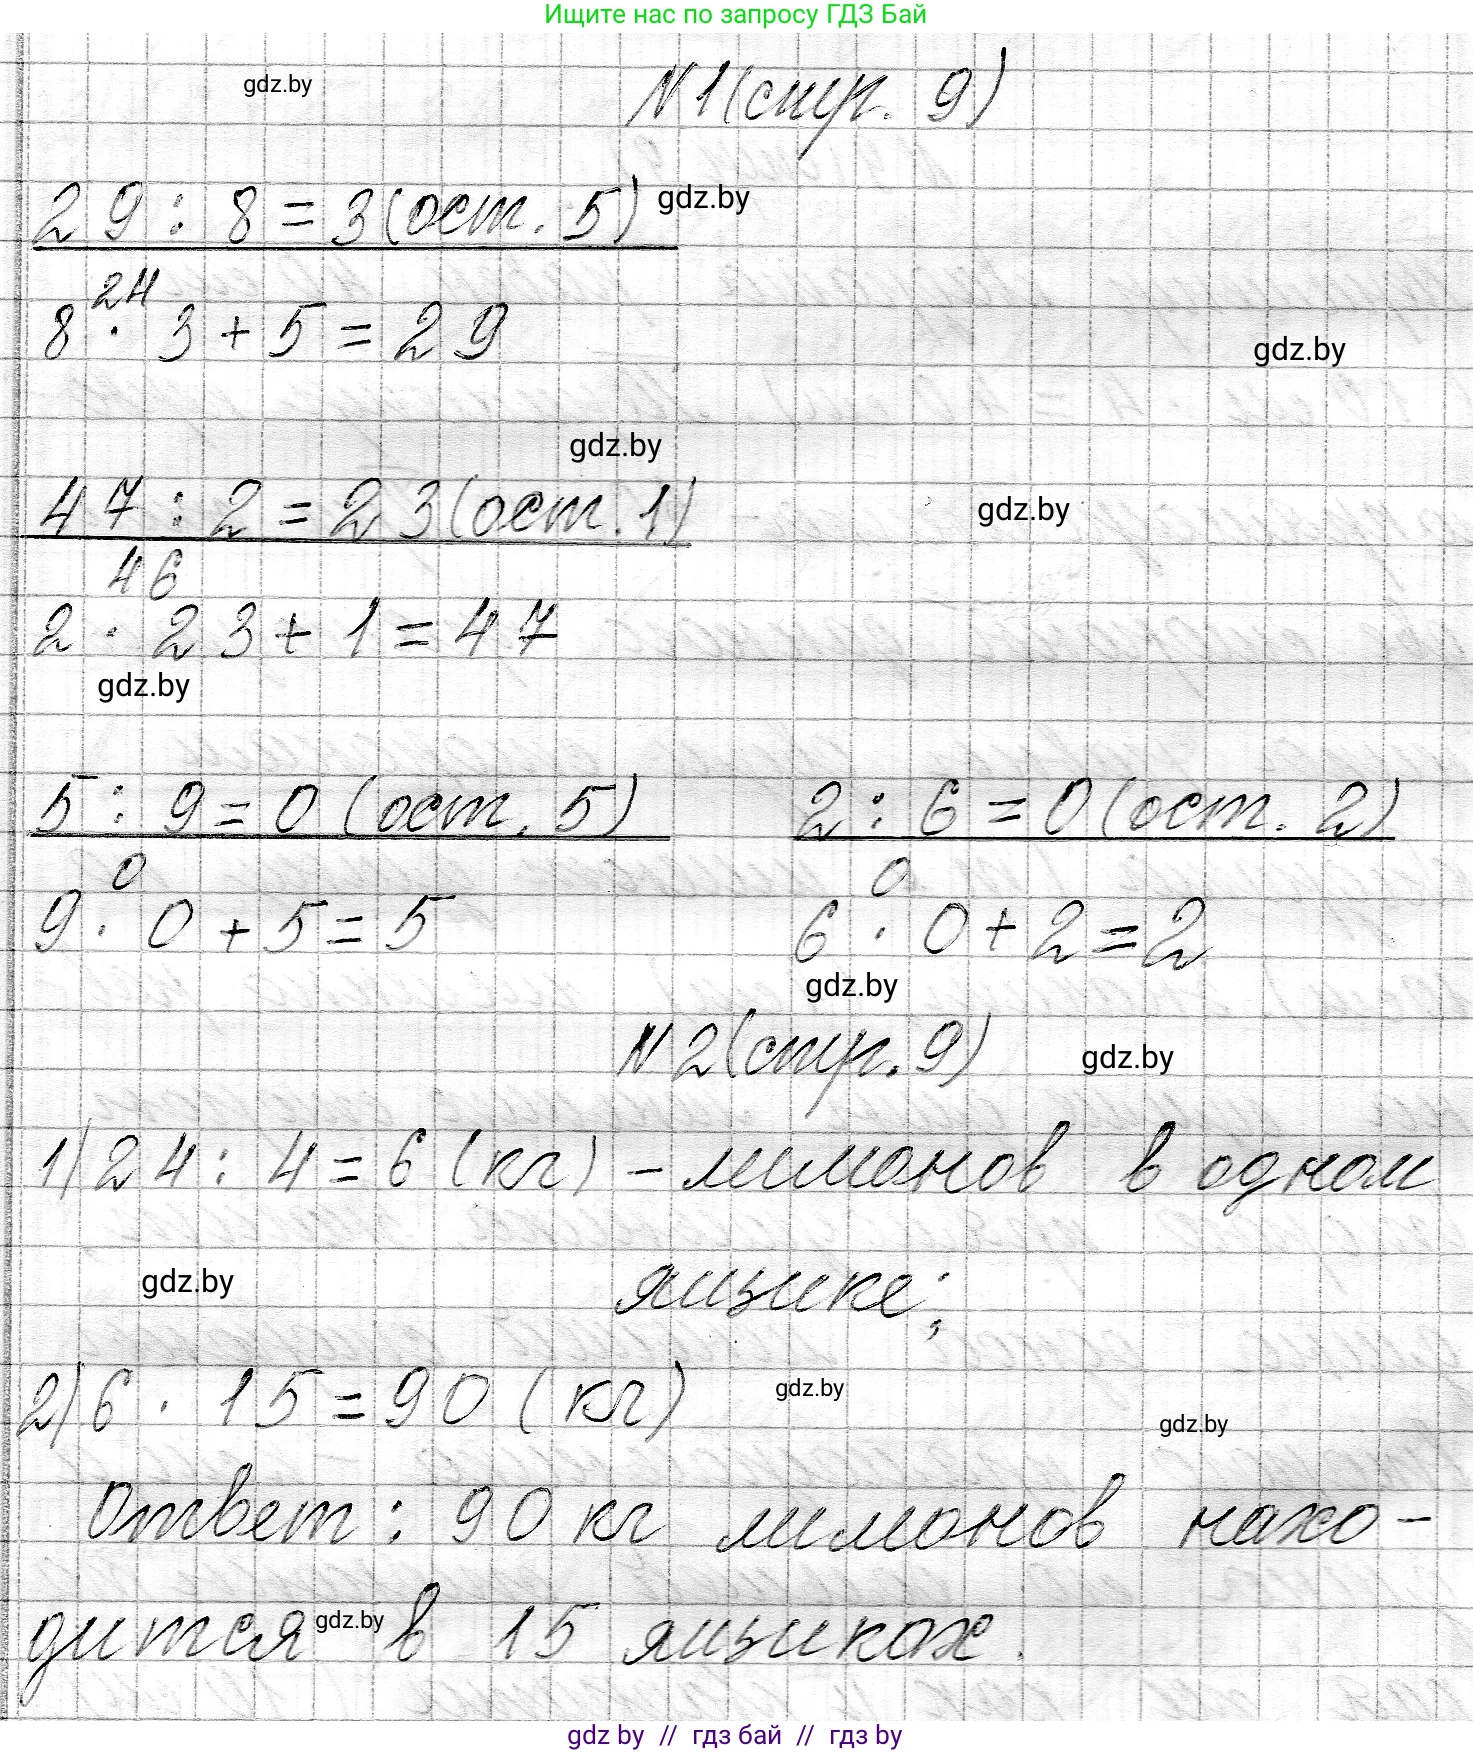 Ищите нас по запросу ГДЗ Бай
gdz.by
N1(стр. 9)
29 : 8 = 3(ост. 5)
gdz.by
24
8 · 3 + 5 = 29
gdz.by
gdz.by
47 : 2 = 23(ост. 1)
gdz.by
46
2 · 23 + 1 = 47
gdz.by
5 : 9 = 0 (ост. 5)
2 : 6 = 0(ост. 2)
0
0
9 · 0 + 5 = 5
6 · 0 + 2 = 2
gdz.by
N2(стр. 9)
gdz.by
1) 24 : 4 = 6 (кг) - лимонов в одном
gdz.by
ящике;
2) 6 · 15 = 90 (кг)
gdz.by
gdz.by
Ответ: 90 кг лимонов нахо-
дится в 15 ящиках.
gdz.by
gdz by // гдз бай // гдз by